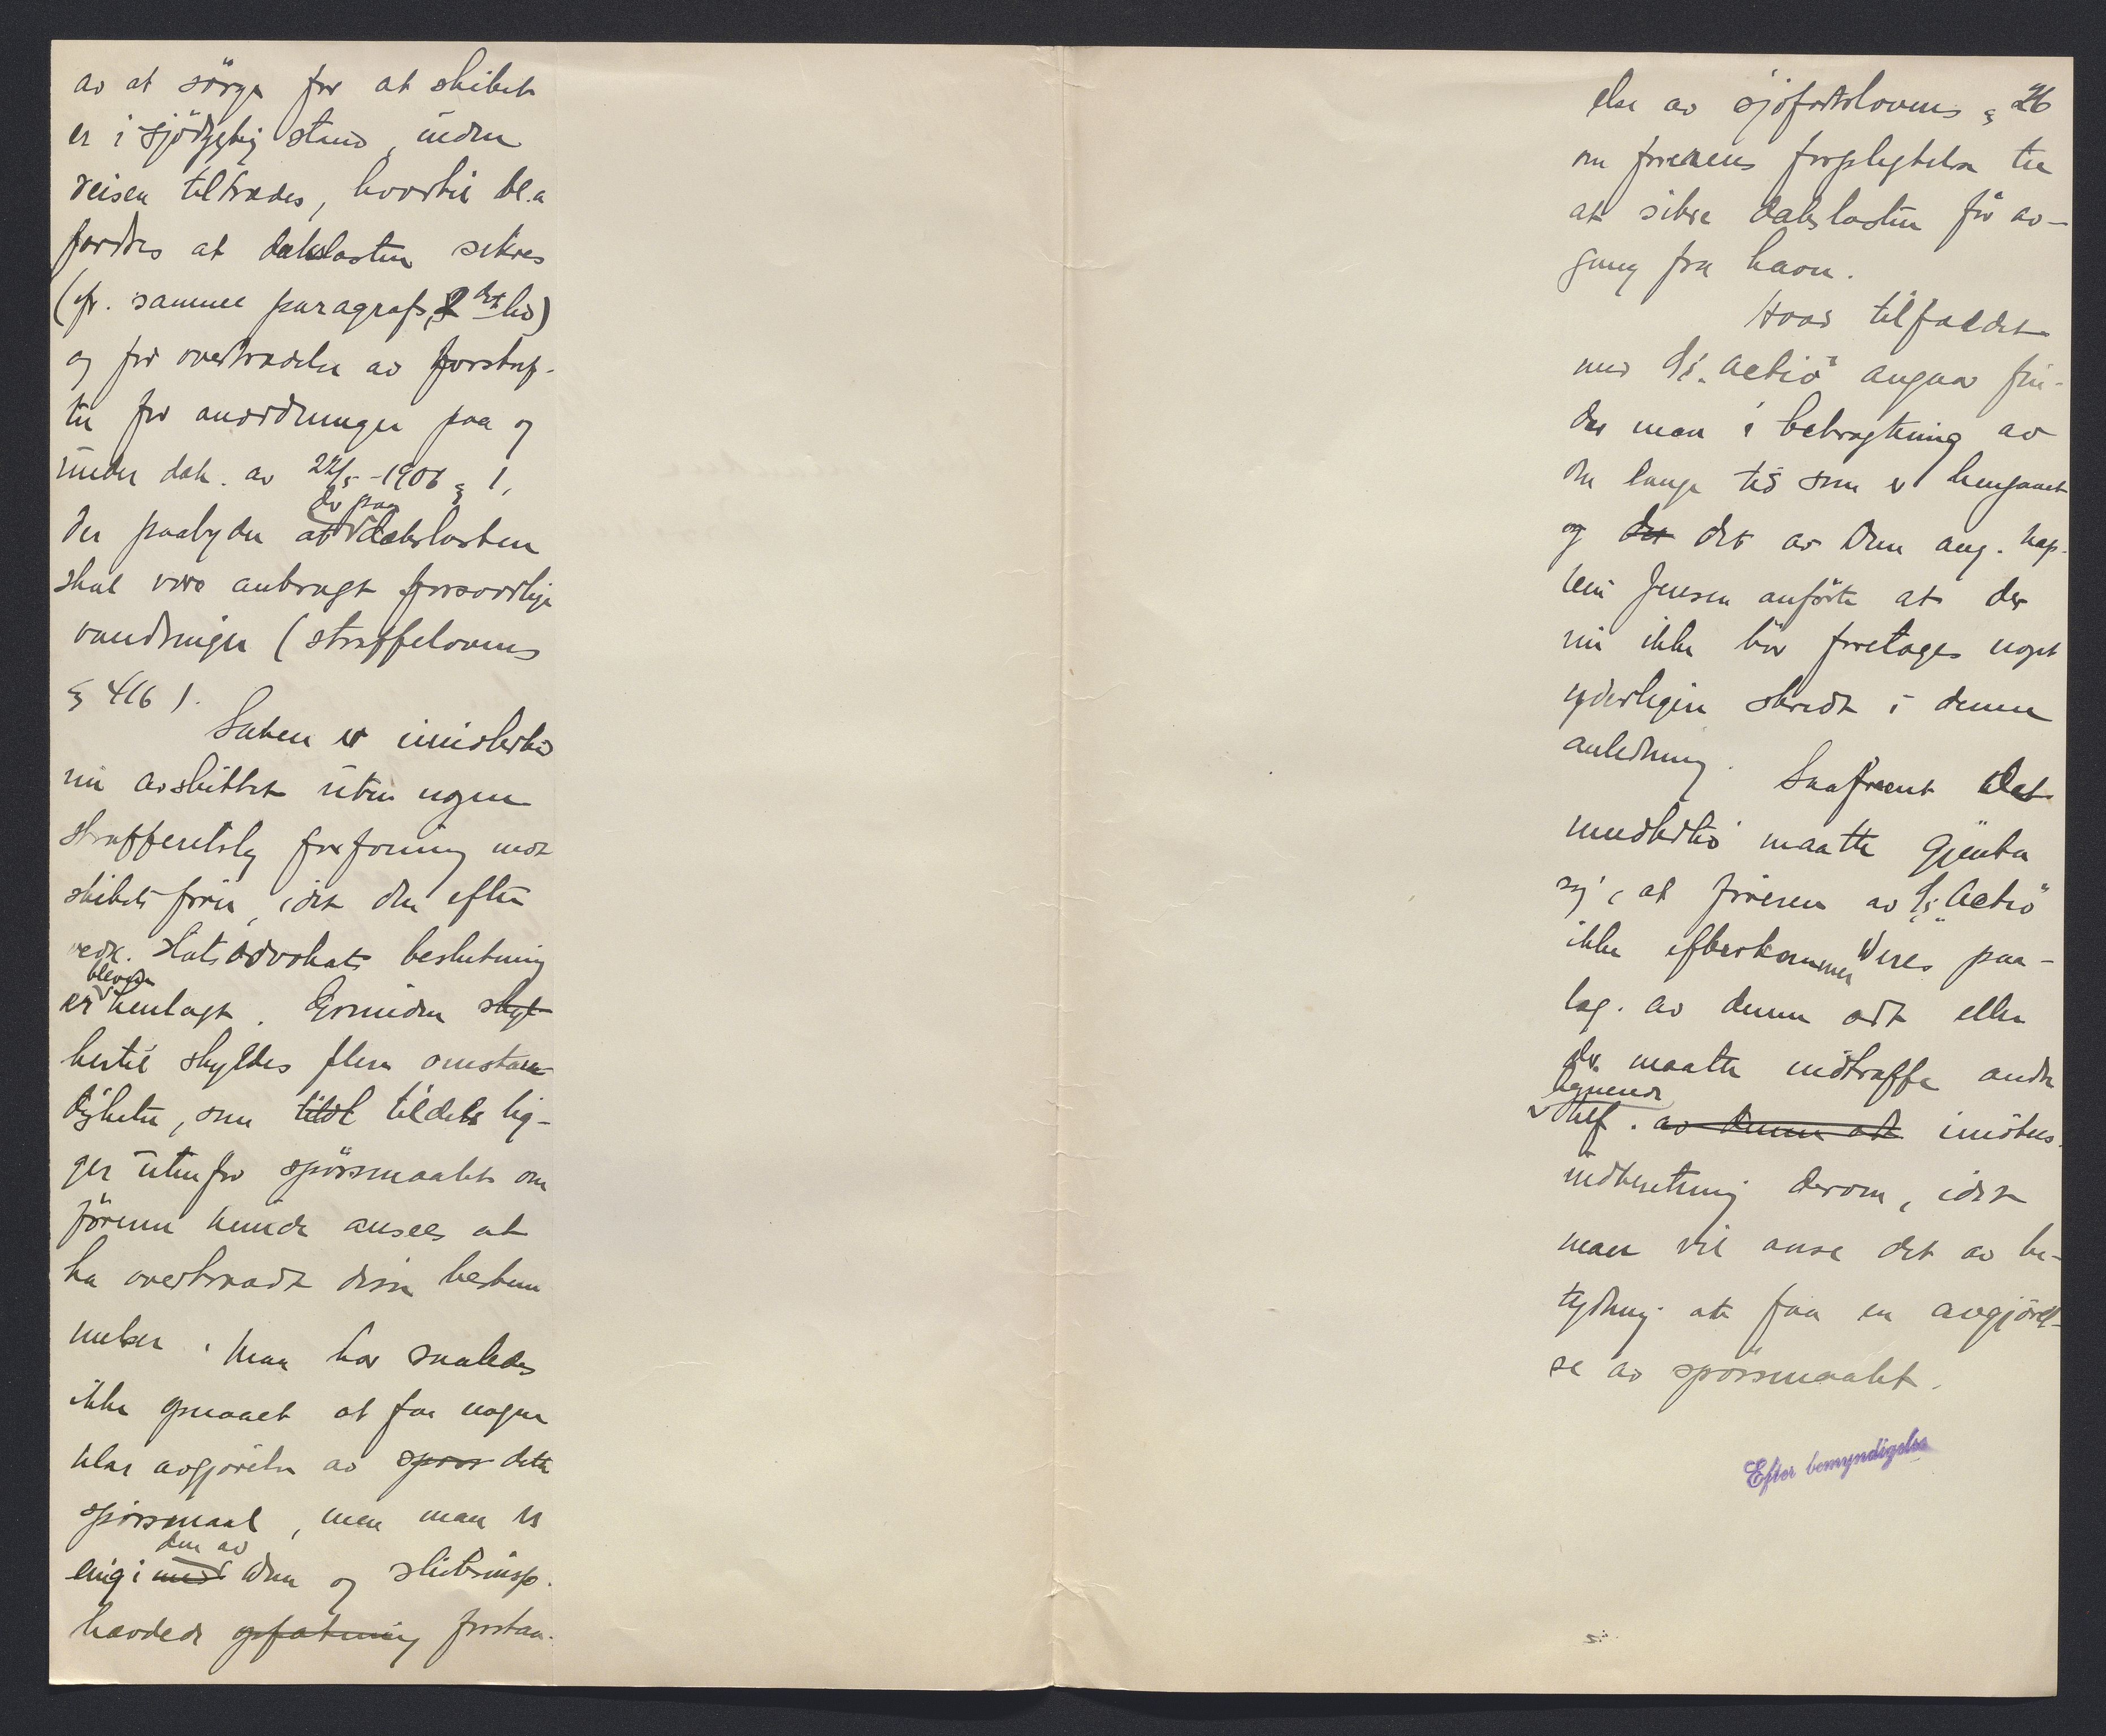 av at sörge for at skibet
er i sjödygtig stand, inden
reisen tiltrædes, hvortil bl.a
fordres at dækslasten sikres
(jfr. samme paragraf, 2det led)
og for overtrædelse av forskrif-
ter for anordninger paa og
under dæk. av 22/5-1906 § 1,
der paabyder at der paa dækslasten
skal være anbragt forsvarlige
vandringer (straffelovens
§ 416).
Saken er imidlertid
nu avsluttet uten nogen
strafferetslig forföining mot
skibets förer, idet den efter
vedk. statsadvokats beslutning
er bleven henlagt. Grunden skyl
hertil skyldes flere omstæn-
digheter, som tildl tildels lig-
ger utenfor spörsmaalet om
föreren kunde ansees at
ha overtraadt disse bestem
melser. Man har saaledes
ikke opnaaet at faa nogen
klar avgjörelse av spørs dette
spörsmaal, men man er
enig i med den av Dem og skibsinsp.
hævdede opfatning forstaa-
else av sjöfartslovens § 26
om förerens forpligtelse til
at sikre dækslasten för av-
gang fra havn.
Hvad tilfældet
med S/S. "Actiö" angaar fin-
der man i betragtning av
den lange tid som er hengaaet
og det det av Dem ang. kap-
tein Jensen anförte at der
nu ikke bör foretages noget
yderligere skridt i denne
anledning. Saafremt det
imidlertid maatte gjenta
sig, at föreren av S/S. "Actiö"
ikke efterkommer Deres paa-
læg. av denne art eller
der maatte indtræffe andre
lignende
tilf. av denne art imötes.
indberetning derom, idet
man vil anse det av be-
tydning at faa en avgjörel-
se av spörsmaalet.
Efter bemyndigelse